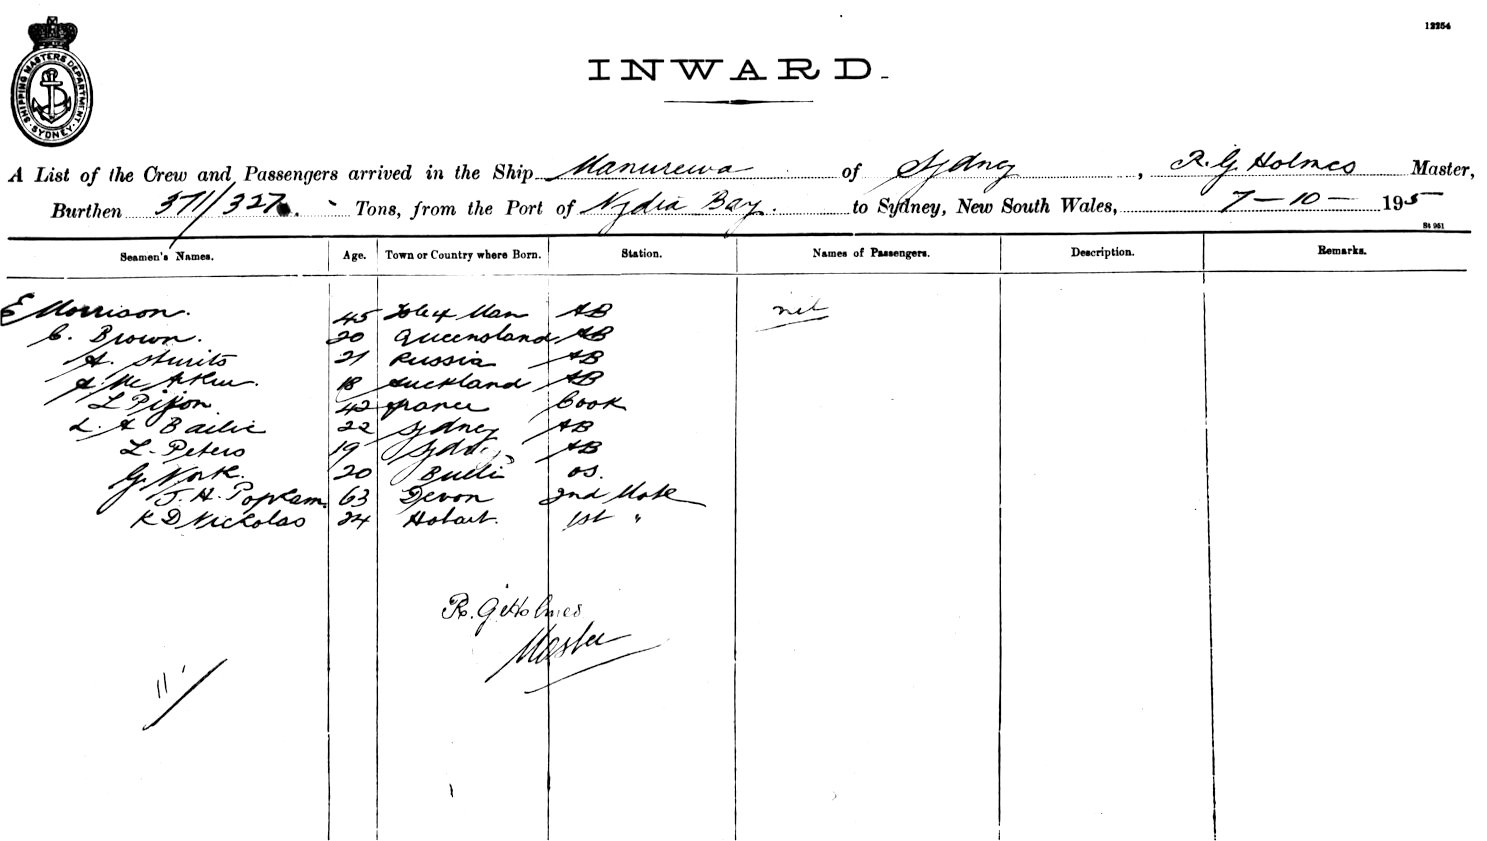 12254
SHIPPING MASTERS DEPARTMENT SYDNEY
INWARD.
A List of the Crew and Passengers arrived in the Ship Manurewa of Sydney, R. G Holmes Master,
Burthen 371/327. Tons, from the Port of Nydia Bay. to Sydney, New South Wales, 7-10- 195
St 951
Seamen's Names. Age. Town or Country where Born. Station. Names of Passengers. Description. Remarks.
E Morrison. 45 Man AB nil
C. Brown. 20 Queensland AB
A. Sturits 21 Russia AB
18 Auckland AB
L Pijon 42 France Cook
L. A Bailie 22 Sydney AB
L. Peters 19 Sydney AB
G. York. 20 Bulli OS.
J. H. Popham 63 Devon 2nd Mate
K D Nickolas 24 Hobart. 1st "
R. G Holmes
Master
11